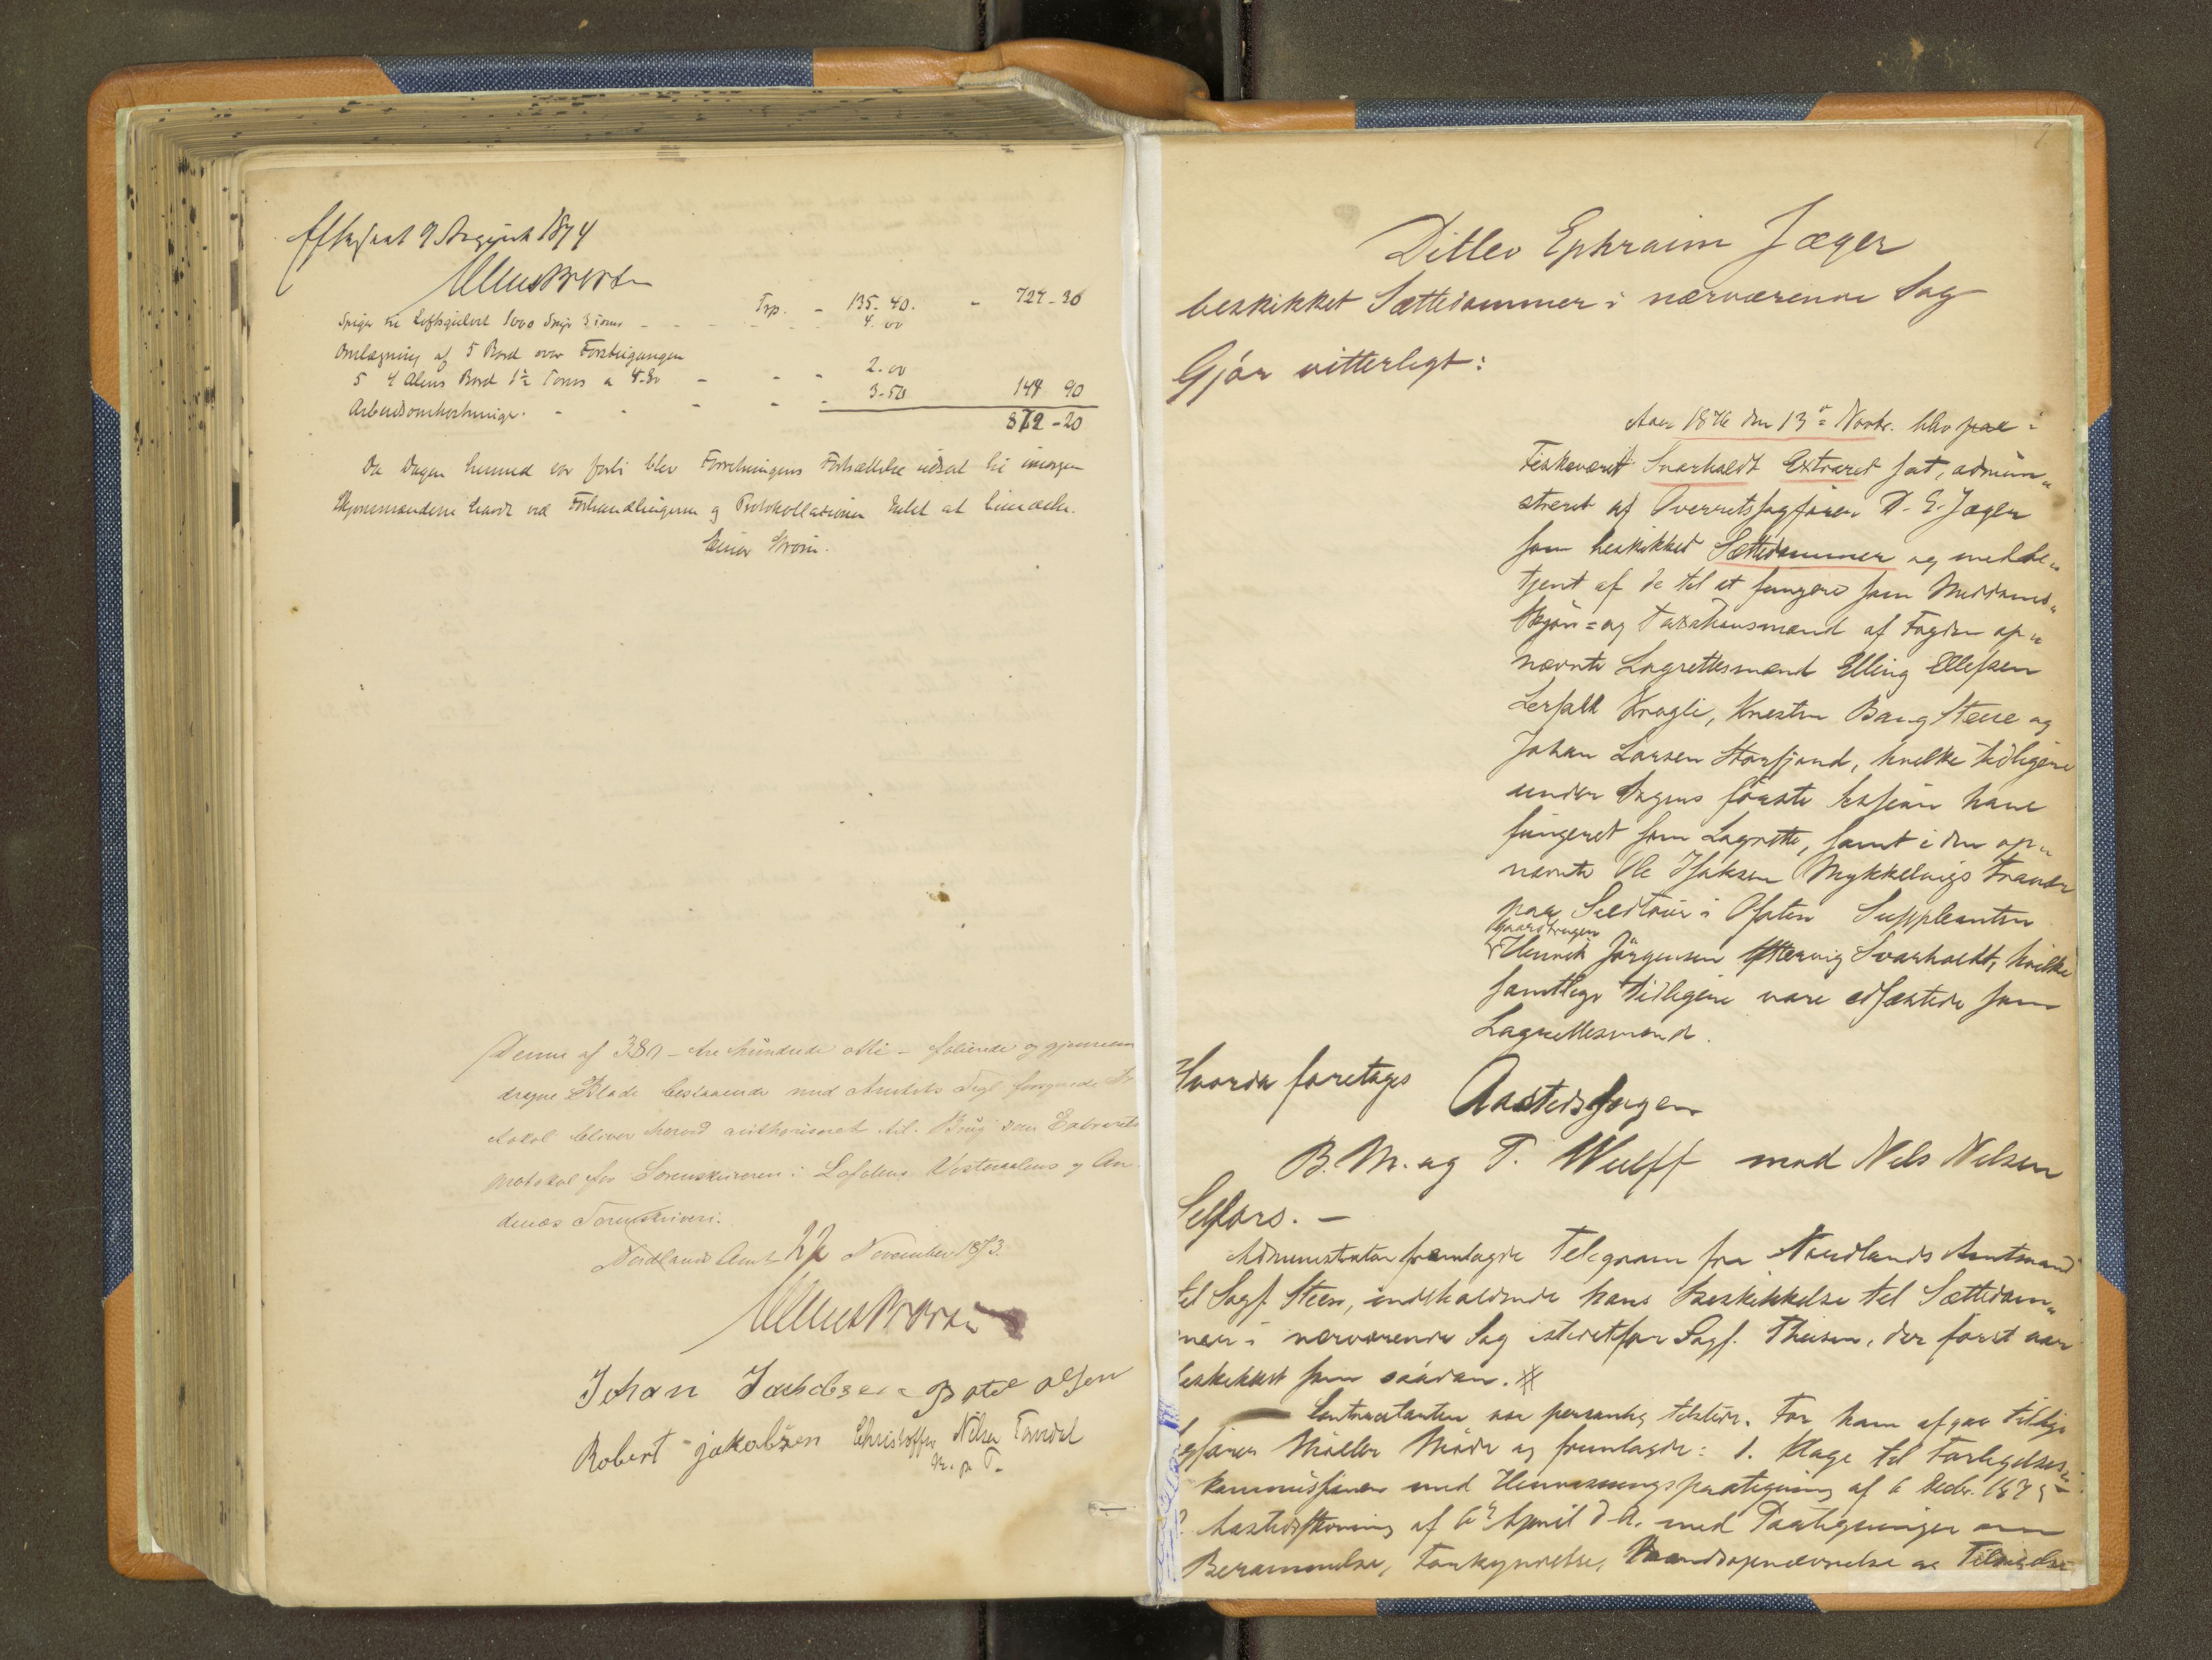 Efterseet 9 August 1874
Trp. - 135. 40. - 724-30
Spiger til Loftsgulvet 1000 Spigr 3 Toms - 4. 00
Omlægning af 5 Bord over Forstuegangen 2. 00
5 4 Alens Bord 1½ Toms a 4-80 - - - 3-50
Arbeidsomkostninger - - - 144 90
872-20
Da Dagen hermed var forbi blev Forretningens Fortsættelse udsat til imorgen
Skjønsmændene havde ved Forhandlingerne og Protokollationen Intet at bemærke.
Einar Strøm.
Denne af 380 - tre hundrede otti - folierede og gjennem
dragne Blade bestaaende med Amtets Segl forsynede Pr
otokol bliver herved authoriseret til Brug som Extrarets
protokol for Sorenskriveren i Lofotens Vesteraalens og An
denæs Sorenskriveri.
Nordlands Amt 22 November 1873.
Johan Jachobsen Botel olsen
Robert jakobsen Christoffer Nilsen Tondal
m. p. P.
Ditlev Ephraim Jæger
beskikket Sættedommer i nærværende Sag
Gjør vitterligt:
Aar 1876 den 13de Novbr. blev paa i
Fiskeværet Svarholdt Extraret sat, admini„
streret af Overretssagfører D. E. Jæger
som beskikket Sættedommer og medbe„
tjent af de til at fungere som Meddoms„
Skjøns= og Taxationsmænd af Fogden op„
nævnte Lagrettesmænd Elling Ellefsen
Lerfald Kragli, Bang Steee og
Johan Larsen Storfjord, hvilke tidligere
under Sagens første Session have
fungeret som Lagrette, samt i den op„
nævnte Ole Isaksen Mykkelvigs Fravær
paa Sildtour i Ofoten Suppleanten
Gaardbruger
Henrik Jørgensen Svarholdt, hvilke
samtlige tidligere vare edfæstede som
Lagrettesmænd.
Hvorda foretages Aastedssagen
B. M. og T. Wulff mod Nils Nilsen
Selfors. -
Administrator fremlagde Telegram fra Nordlands Amtmand
til Sagf. Steen, indeholdende hans Beskikkelse til Sættedom„
mer i nærværende Sag istedetfor Sagf. Theisen, der først var
beskikket som saadan. #
Contracitanten var personlig tilstede. For ham afgav tillige
Sagfører Møller Møde og fremlagde: 1. Klage til Forligelses„
kommissionen med Henvisningspaategning af 6 Decbr. 1875
2. Aastedsstevning af 6te April d. A. med Paategninger om
Berammelse, Forkyndelse, Mandsopnævnelse og Tilsigelse